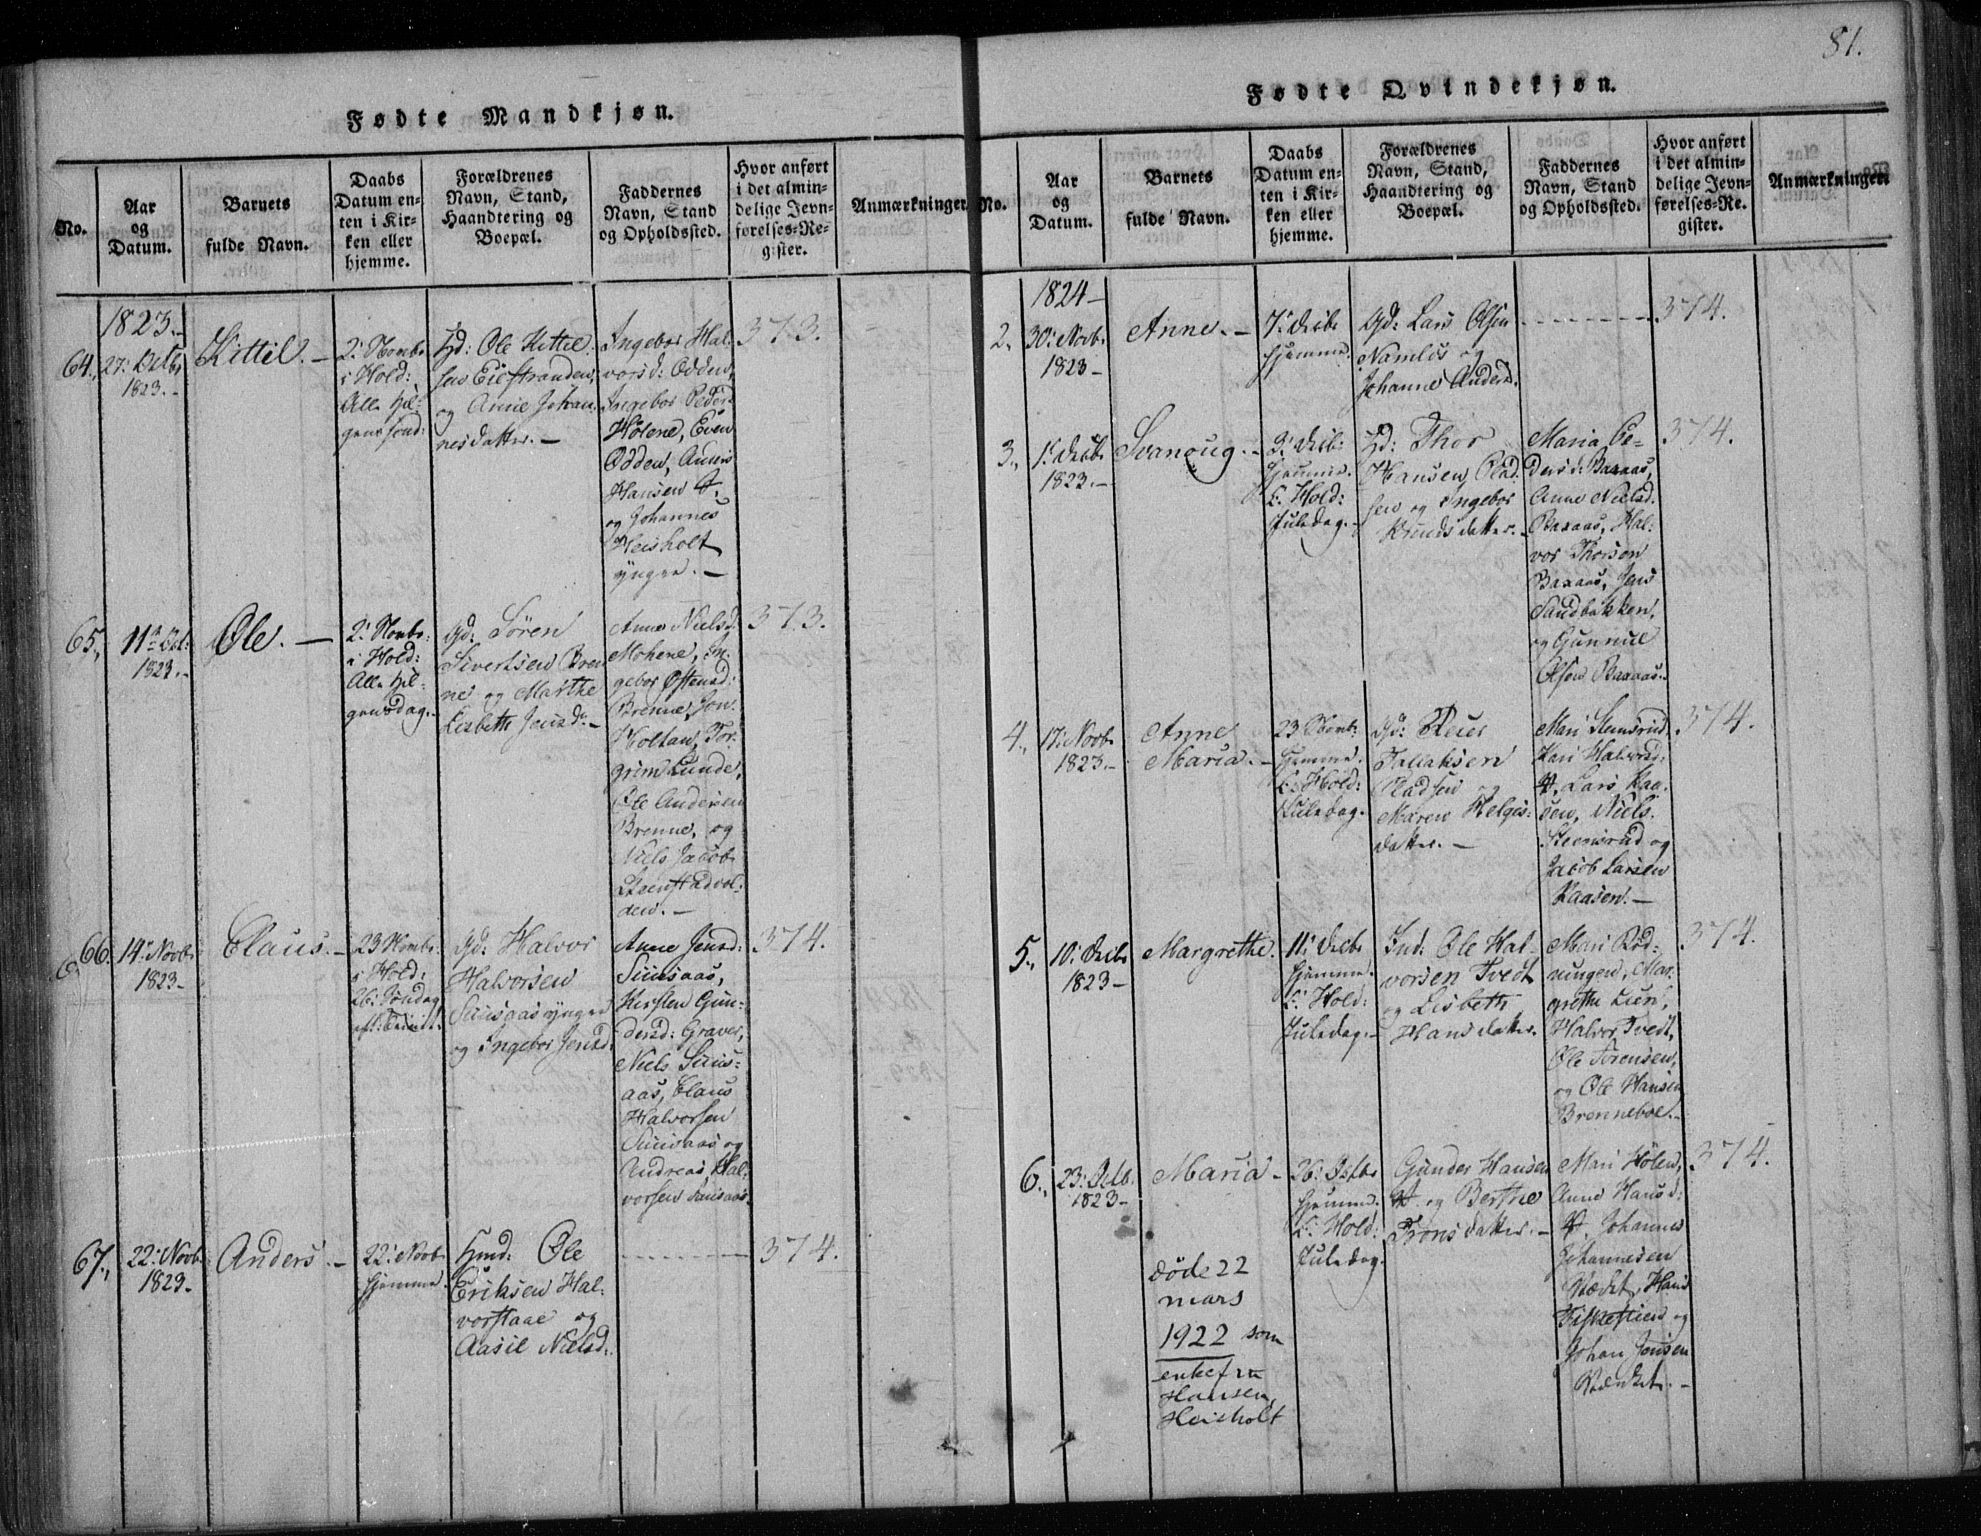 81.
Fødte Mandkjøn.
No.
Aar
og
Datum.
Barnets
fulde Navn.
Daabs
Datum en-
ten i Kir-
ken eller
hjemme.
Forældrenes
Navn, Stand,
Haandtering og
Boepæl.
Faddernes
Navn, Stand
og Opholdssted.
Hvor anført
i det almin-
delige Jevn-
førelses-Re-
gister.
Anmærkninger.
1823.
64.
27. Octbr
1823.
Kittil. –
2. Novbr
i Hold:
Alle Hel-
gens
Hd: Ole Kittil-
sen Eiestranden,
og Anne Johan-
nesdatter. –
Ingebor Hal-
vorsd: Odden,
Ingebor Peder-
Holene, Even
Odden, Anders
Hansen
og Johannes
Heisholt
yngre. –
373.
65.
11te Oct:
1823.
Ole. –
2. Novbr:
i Hold:
Alle Hel-
gensdag.
Gd: Søren
Sivertsen Bren-
ne og Marthe
Lisbeth Jensd: –
Anne Nielsd:
Mohene, In-
gebor Østensd:
Brenne, Jon
Holtan, Tor-
grim Lunde,
Ole Andersen
Brenne, og
Niels Jacob
Steenstadvol-
den. –
373.
66.
14. Novbr
1823
Claus. –
23 Novbr:
i Hold:
26. Søndag
eft: Trinit:
Gd: Halvor
Halvorsen
Suusaas yngre
og Ingebor Jensd:
Anne Jensd:
Suusaas,
Kirsten Gun-
dersd: Graver,
Niels Suus-
aas, Claus
Halvorsen
Suusaas og
Andreas Hal-
vorsen Suusaas.
374.
67.
22. Novb
1823.
Anders. –
22. Novb
hjemme.
Hmd: Ole
Eriksen Hal-
vorstaae og
Aasil Nielsd:
374.
Fødte Qvindekjøn.
No.
Aar
og
Datum.
Barnets
fulde Navn.
Daabs
Datum en-
ten i Kir-
ken eller
hjemme.
Forældrenes
Navn, Stand,
Haandtering og
Boepæl.
Faddernes
Navn, Stand
og Opholdssted.
Hvor anført
i det almin-
delige Jevn-
førelses-Re-
gister.
Anmærkninger.
1824 –
2.
30. Novb:
1823 –
Anne. –
7. Decbr
hjemme.
Gd: Lars Olsen
Namløs og
Johanne Andersd.
374.
3.
1. Decbr
1823. –
Svanoug. –
3. Decbr:
hjemme.
C. Hold:
Juledag. –
Hd: Thor
Hansen Plad-
sen og Ingebor
Knudsdatter. –
Maria Pe-
dersd: Baxaas,
Anne Nielsd:
Baxaas, Hal-
vor Thorsen
Baxaas, Jens
Sandbakken,
og Gunnul
Olsen Baxaas.
374.
4.
17. Novb:
1823. –
Anne
Maria. –
23 Novbr:
hjemme.
C. Hold:
Juledag.
Gd: Reier
Tallaksen
Pladsen og
Maren Helges-
datter. –
Mari Steensrud,
Kari Halvorsd:
Lars Kaa-
sen, Niels
Steensrud og
Jacob Larsen
Kaasen. –
374.
5.
10. Decbr
1823 –
Margrethe.
11. Decbr
hjemme.
C. Hold:
Juledag. –
Ind: Ole Hal-
vorsen Tvedt
og Lisbeth
Hansdatter.
Mari Rød-
ningen, Mar-
grethe Lien,
Halvor Tvedt,
Ole Sørensen,
og Ole Hansen
Brenneboe. –
374.
6.
23. Octb:
1823 –
Maria –
26. Octbr
hjemme.
C. Hold:
Juledag.
Gunder Hansen
og Berthe
Tronsdatter. –
Mari Holen,
Anne Hansd:
Johannes
Johannesen
Hans
Fiskestien og
Johan Jensen
374.
døde 22
mars
1922 som
enkefru
Hansen,
Heisholt